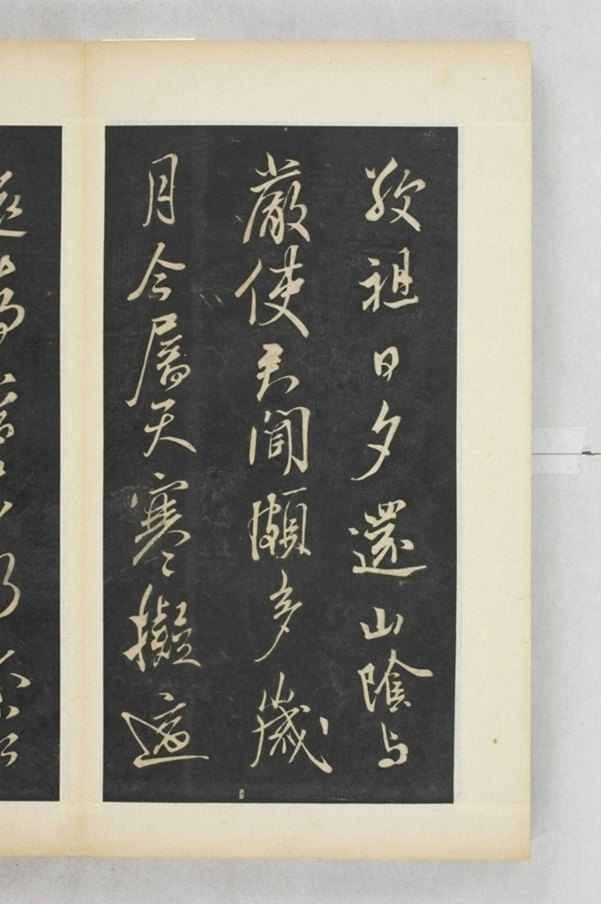 敬祖日夕還山陰与
嚴使君聞頗多歲
月今屬天寒擬適